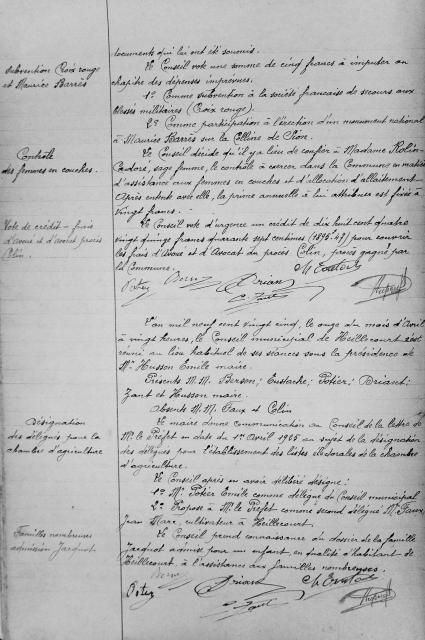 documents qui lui ont été soumis.
Subvention Croix rouge
et Maurice Barrès
Le Conseil vote une somme de cinq francs à imputer au
chapitre des dépenses imprévues.
1º Comme subvention à la société française de secours aux
blessés militaires (Croix rouge).
2º Comme participation à l'érection d'un monument national
à Maurice Barrès sur la Colline de Sion.
Contrôle
des femmes en couches.
Le Conseil décide qu'il y a lieu de confier à Madame Rolin-
sage femme, le contrôle à exercer dans la Commune en matière
d'assistance aux femmes en couches et d'allocation d'allaitement.
Après entente avec elle, la prime annuelle à lui attribuer est fixée à
vingt francs.
Vote de crédit - frais
d'avoué et d'avocat procès
Colin.
Le Conseil vote d'urgence un crédit de dix huit cent quatre
vingt quinze francs quarante sept centimes (1895.47) pour couvrir
les frais d'Avoué et d'Avocat du procès Colin, procès gagné par
la Commune.
Potier
Briant
Zant
L'an mil neuf cent vingt cinq, le onze du mois d'Avril
à vingt heures, le Conseil municipal de Heillecourt s'est
réuni au lieu habituel de ses séances sous la présidence de
Mr Husson Emile maire.
Présents M.M. Bersen; Eustache; Potier; Briant;
Zant et Husson maire.
Absents M.M. Faux et Colin
Désignation
des délégués pour la
chambre d'agriculture
Le maire donne communication au Conseil de la lettre de
Mr le Préfet en date du 1er Avril 1925 au sujet de la désignation
des délégués pour l'établissement des listes électorales de la chambre
d'agriculture.
Le Conseil après en avoir délibéré désigne:
1º Mr Potier Emile comme délégué du Conseil municipal
2º Propose à Mr le Préfet comme second délégué Mr Faux
Jean Marc, cultivateur à Heillecourt.
Familles nombreuses
admission Jacquot.
Le Conseil prend connaissance du dossier de la famille
Jacquot admise pour un enfant, en qualité d'habitant de
Heillecourt, à l'assistance aux familles nombreuses.
Potier
Briant
Zant